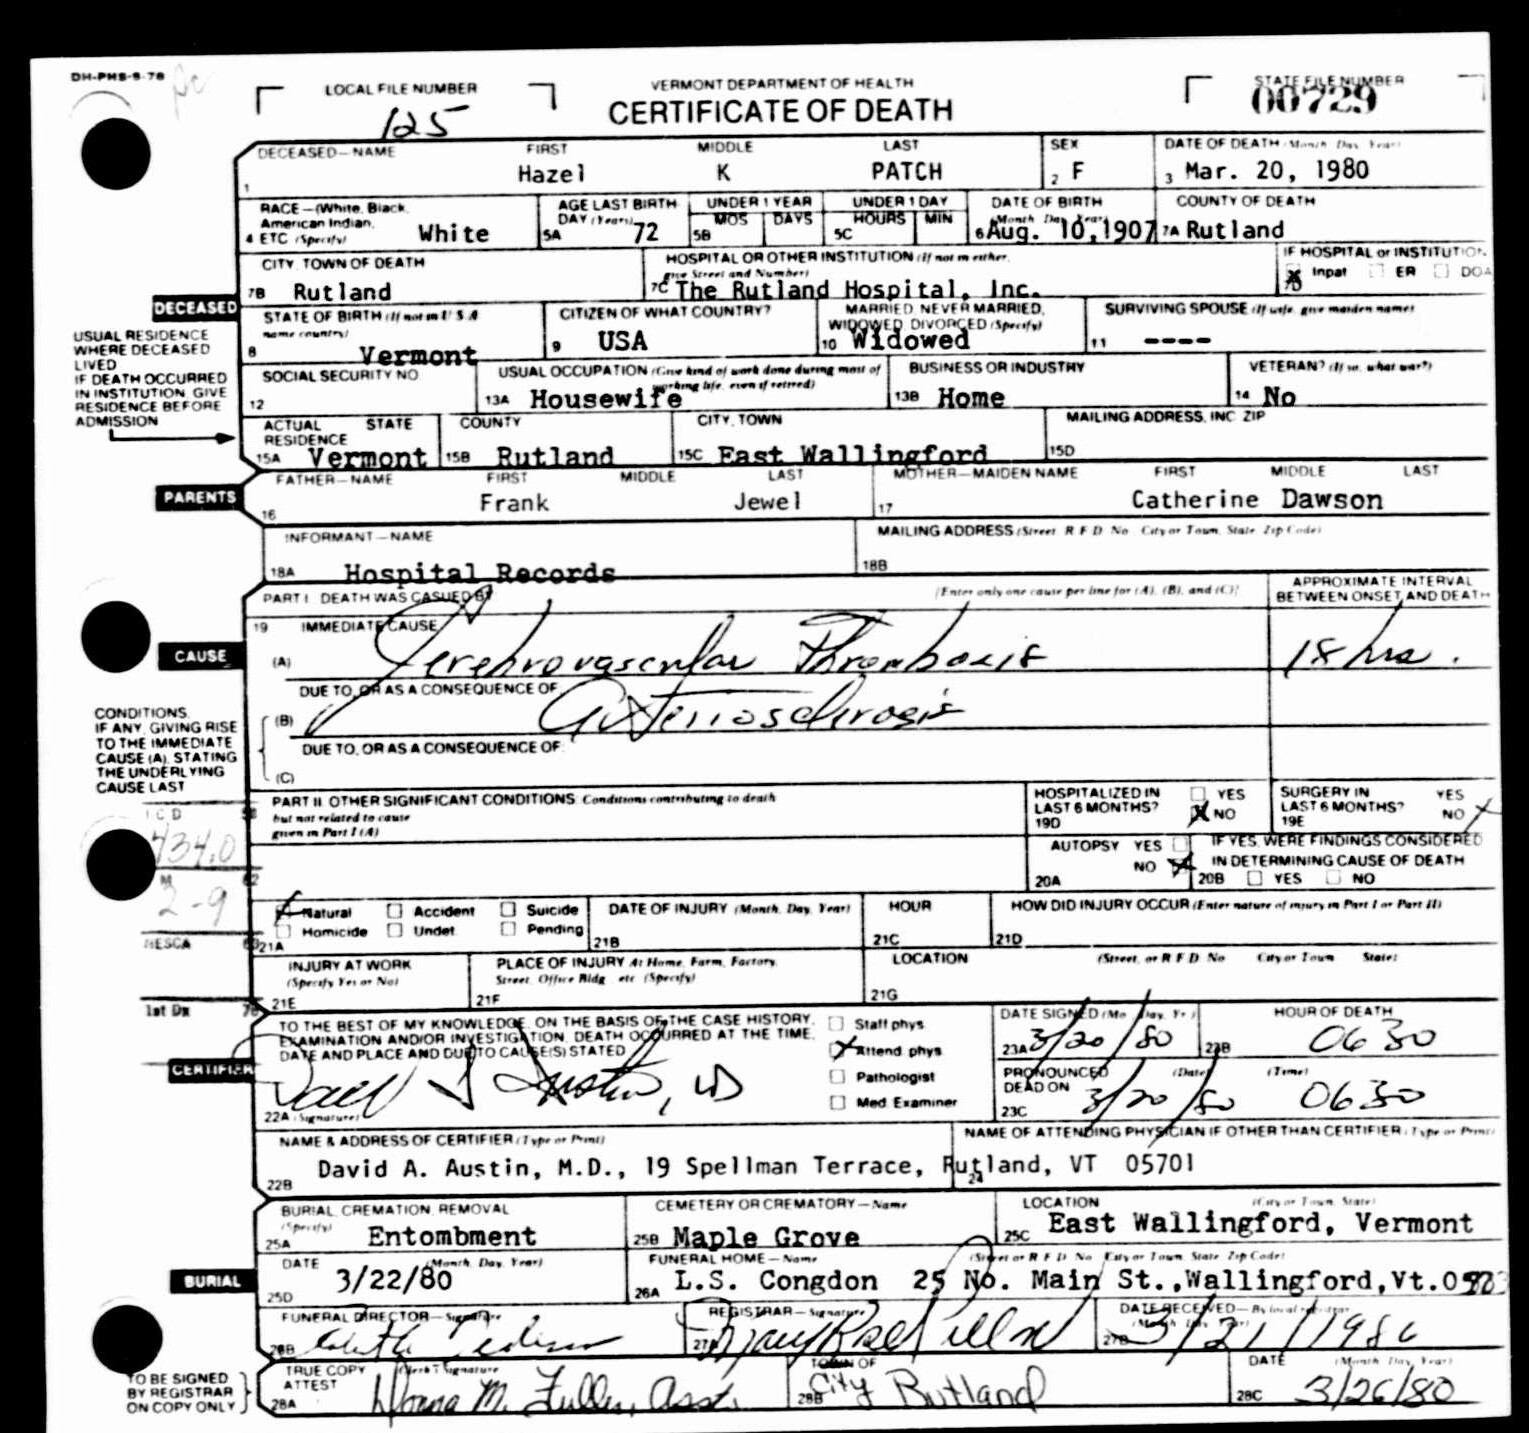 DH-PHS-9-78
LOCAL FILE NUMBER
125
VERMONT DEPARTMENT OF HEALTH
CERTIFICATE OF DEATH
STATE FILE NUMBER
00729
DECEASED—NAME FIRST MIDDLE LAST
1 Hazel K PATCH
SEX
2 F
DATE OF DEATH (Month, Day, Year)
3 Mar. 20, 1980
RACE—(White, Black, American Indian,
4 ETC (Specify) White
AGE LAST BIRTH DAY (Years)
5A 72
UNDER 1 YEAR
MOS DAYS
5B
UNDER 1 DAY
HOURS MIN
5C
DATE OF BIRTH
(Month Day Year)
6 Aug. 10,1907
COUNTY OF DEATH
7A Rutland
CITY, TOWN OF DEATH
7B Rutland
HOSPITAL OR OTHER INSTITUTION (If not in either,
give Street and Number)
7C The Rutland Hospital, Inc.
IF HOSPITAL or INSTITUTION
7D X Inpat ER DOA
DECEASED
USUAL RESIDENCE
WHERE DECEASED
LIVED
IF DEATH OCCURRED
IN INSTITUTION, GIVE
RESIDENCE BEFORE
ADMISSION
STATE OF BIRTH (If not in U S A
name country)
8 Vermont
CITIZEN OF WHAT COUNTRY?
9 USA
MARRIED, NEVER MARRIED,
WIDOWED, DIVORCED (Specify)
10 Widowed
SURVIVING SPOUSE (If wife, give maiden name)
11 ----
SOCIAL SECURITY NO
12
USUAL OCCUPATION (Give kind of work done during most of
working life, even if retired)
13A Housewife
BUSINESS OR INDUSTRY
13B Home
VETERAN? (If so, what war?)
14 No
ACTUAL RESIDENCE STATE
15A Vermont
COUNTY
15B Rutland
CITY, TOWN
15C East Wallingford
MAILING ADDRESS, INC ZIP
15D
PARENTS
FATHER—NAME FIRST MIDDLE LAST
16 Frank Jewel
MOTHER—MAIDEN NAME FIRST MIDDLE LAST
17 Catherine Dawson
INFORMANT—NAME
18A Hospital Records
MAILING ADDRESS (Street, R F D No City or Town, State, Zip Code)
18B
PART I DEATH WAS CASUED BY
(Enter only one cause per line for (A), (B), and (C))
APPROXIMATE INTERVAL
BETWEEN ONSET AND DEATH
CAUSE
19 IMMEDIATE CAUSE
(A) Cerebrovascular Thrombosis 18 hrs.
DUE TO, OR AS A CONSEQUENCE OF
(B) Arteriosclerosis
DUE TO, OR AS A CONSEQUENCE OF:
(C)
CONDITIONS,
IF ANY, GIVING RISE
TO THE IMMEDIATE
CAUSE (A), STATING
THE UNDERLYING
CAUSE LAST
PART II OTHER SIGNIFICANT CONDITIONS: Conditions contributing to death
but not related to cause
given in Part I (A)
HOSPITALIZED IN
LAST 6 MONTHS?
19D YES X NO
SURGERY IN
LAST 6 MONTHS?
19E YES NO X
AUTOPSY YES
NO X
20A
IF YES, WERE FINDINGS CONSIDERED
IN DETERMINING CAUSE OF DEATH
20B YES NO
I C D
434.0
2-9
1st Dx
Natural Accident Suicide
Homicide Undet. Pending
21A
DATE OF INJURY (Month, Day, Year)
21B
HOUR
21C
HOW DID INJURY OCCUR (Enter nature of injury in Part I or Part II)
21D
INJURY AT WORK
(Specify Yes or No)
21E
PLACE OF INJURY At Home, Farm, Factory,
Street, Office Bldg., etc. (Specify)
21F
LOCATION (Street, or R F D No City or Town State)
21G
CERTIFIER
TO THE BEST OF MY KNOWLEDGE, ON THE BASIS OF THE CASE HISTORY,
EXAMINATION AND/OR INVESTIGATION, DEATH OCCURRED AT THE TIME,
DATE AND PLACE AND DUE TO CAUSE(S) STATED
22A (Signature)
Staff phys
X Attend phys
Pathologist
Med. Examiner
DATE SIGNED (Mo., Day, Yr.)
23A 3/20/80
HOUR OF DEATH
23B 0630
PRONOUNCED DEAD ON (Date) (Time)
23C 3/20/80 0630
NAME & ADDRESS OF CERTIFIER (Type or Print)
22B David A. Austin, M.D., 19 Spellman Terrace, Rutland, VT 05701
NAME OF ATTENDING PHYSICIAN IF OTHER THAN CERTIFIER (Type or Print)
24
BURIAL
BURIAL, CREMATION, REMOVAL
(Specify)
25A Entombment
CEMETERY OR CREMATORY—Name
25B Maple Grove
LOCATION (City or Town, State)
25C East Wallingford, Vermont
DATE (Month, Day, Year)
25D 3/22/80
FUNERAL HOME—Name (Street or R F D No City or Town, State, Zip Code)
26A L.S. Congdon 25 No. Main St.,Wallingford,Vt.
FUNERAL DIRECTOR—Signature
26B
REGISTRAR—Signature
27A
DATE RECEIVED—By local registrar
(Month, Day, Year)
27B 3/21/1980
TO BE SIGNED
BY REGISTRAR
ON COPY ONLY
TRUE COPY ATTEST (Clerk's Signature
28A Donna M. Fuller, Asst.
TOWN OF
28B City Rutland
DATE (Month, Day, Year)
28C 3/26/80